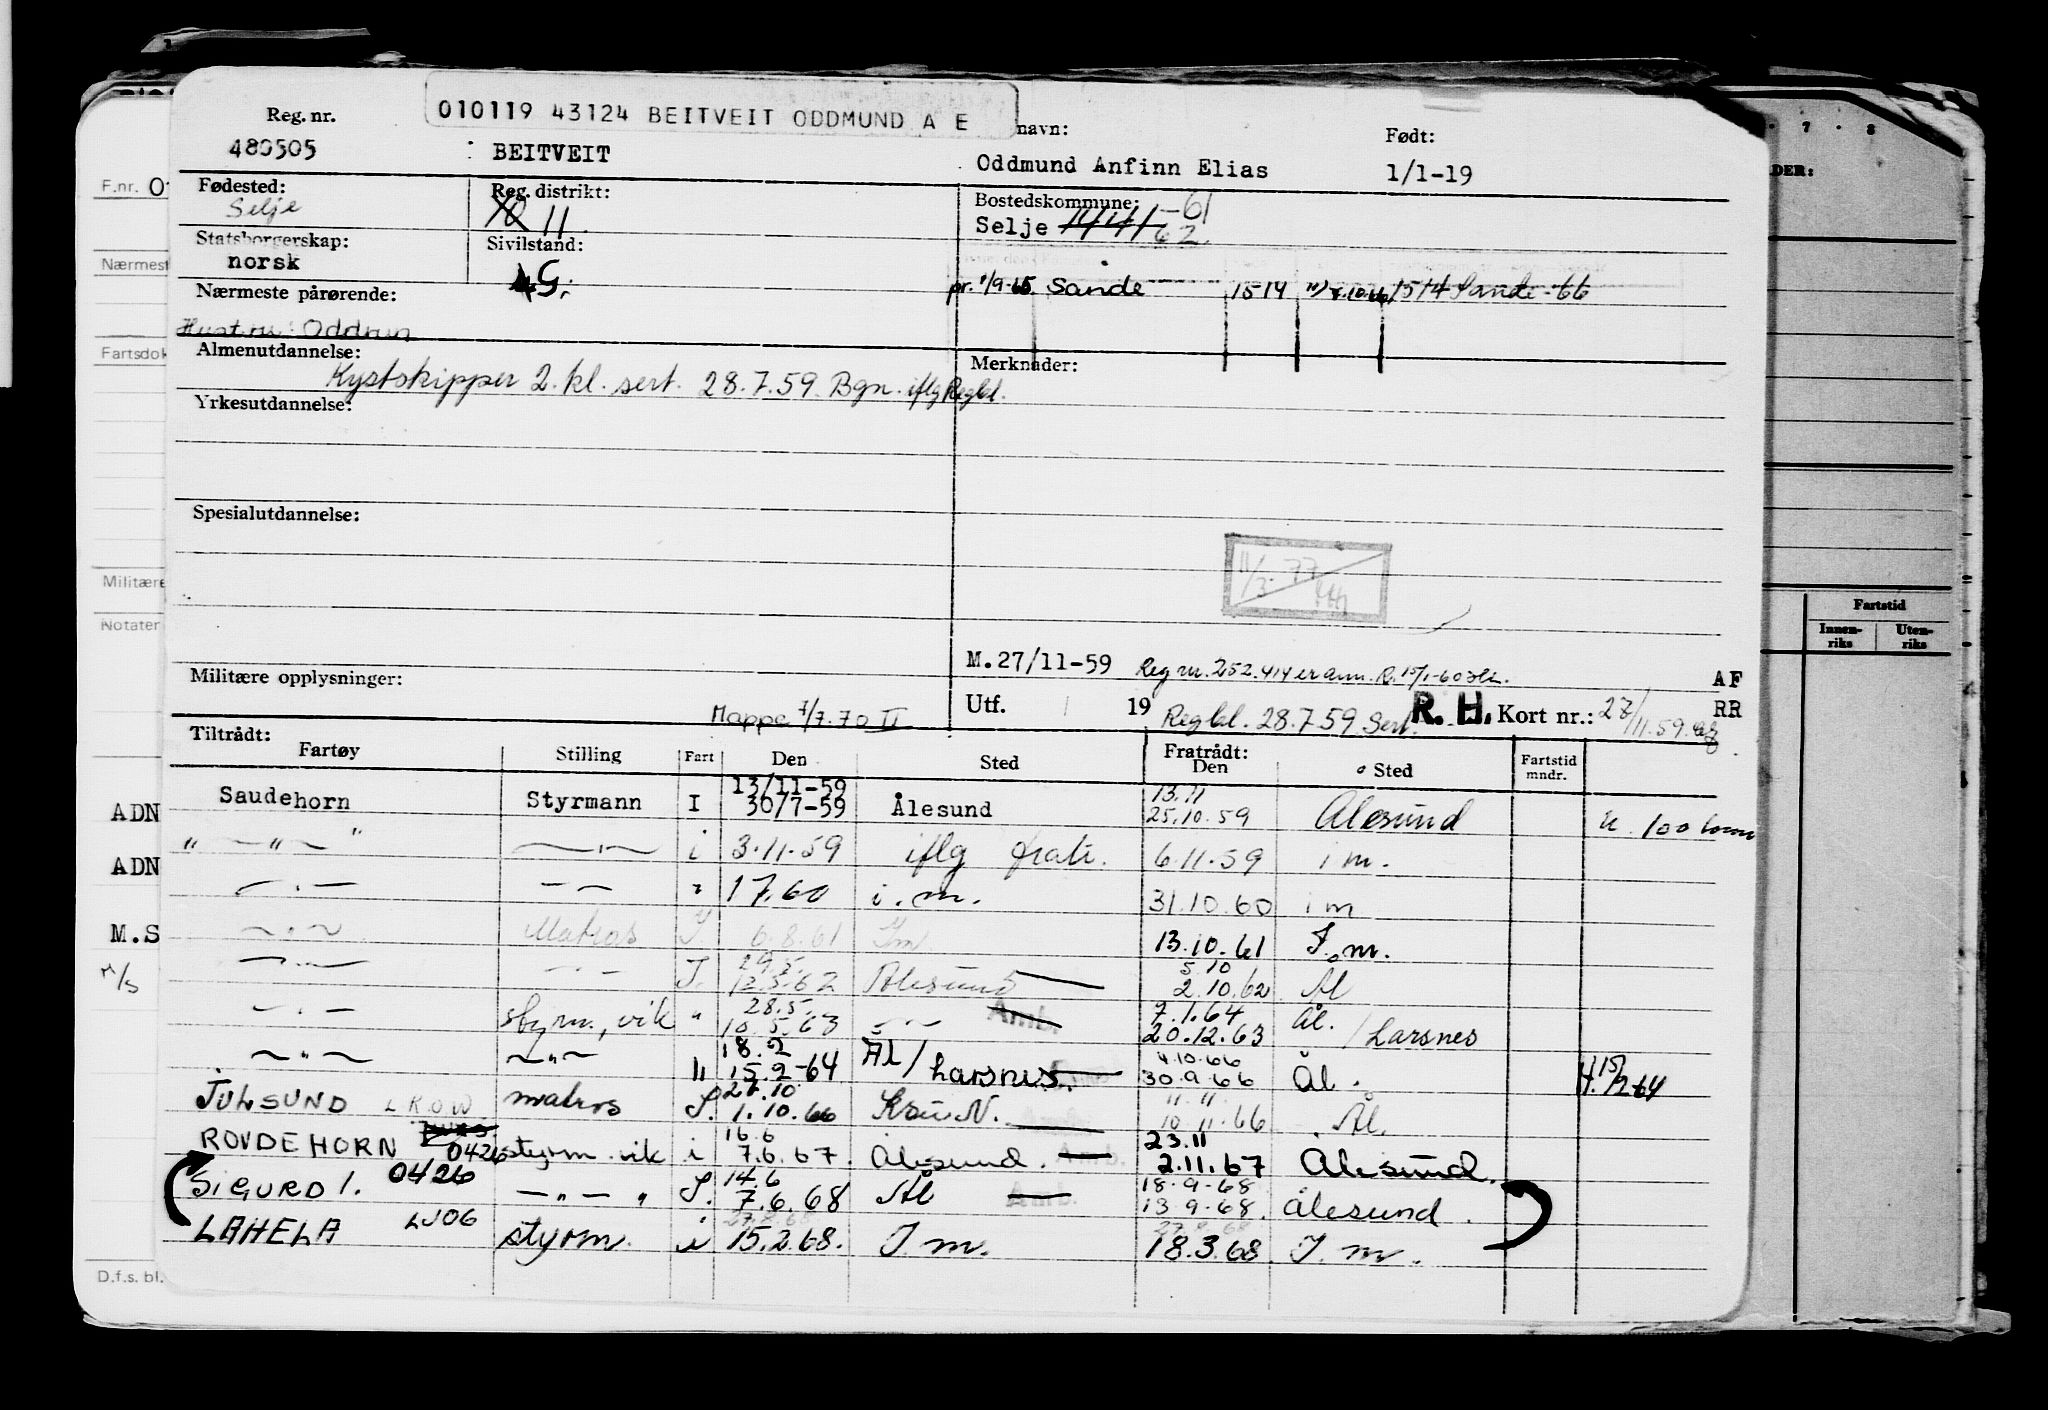 010119 43124 BEITVEIT ODDMUND A E
Reg. nr. navn: Født:
480505 BEITVEIT Oddmund Anfinn Elias 1/1-19
F.nr.
Fødested: Reg. distrikt: Bostedskommune: -61
Selje 10 11 Selje 62
Statsborgerskap: Sivilstand:
norsk G.
Nærmest
Nærmeste pårørende: pr. 1/9-65 Sande 1514 1514 Sande-66
Hustru: Oddrun
Fartsdok
Almenutdannelse: Merknader:
Kystskipper 2. kl. sert. 28.7.59. Bgn. iflg Regbl.
Yrkesutdannelse:
Spesialutdannelse:
11/3-77
Militære
Notater
M.27/11-59 Reg nr. 252.414 er ann. 15/1-60
AF
Militære opplysninger:
Mappe 1/7.70 II Utf. 19 Regbl. 28.7.59 Sert. R. H. Kort nr.: 27/11.59. RR
Tiltrådt: Fratrådt:
Fartøy Stilling Fart Den Sted Den Sted Fartstid mndr.
Fartstid
Innen-riks Uten-riks
13/11-59 13.11
ADN Saudehorn Styrmann I 30/7-59 Ålesund 25.10.59 Ålesund u. 100 tonn
" — " — " — " — i 3.11.59 iflg fratr. 6.11.59 i m.
ADN — " — — — " 1.7.60 i. m. 31.10.60 i m
M.S — " — Matros I. 6.8.61 I m. 13.10.61 I. m.
29.5. 5.10
M/S — " — — " — I. 12.5.62 Ålesund 2.10.62 Ål
28.5. 7.1.64
— " — styrm., vik " 10.5.63 — " — Amb. 20.12.63 Ål. / Larsnes
18.2 4.10.66
— " — — " — " 15.2-64 Ål / Larsnes. 30.9.66 Ål. 15/2-64
27.10 11.11
JULSUND LKOW matros I. 1.10.66 Kr.su N. 10.11.66 Ål.
16.6 23.11
ROVDEHORN 0426 styrm. vik i 7.6.67. Ålesund. Amb. 2.11.67 Ålesund.
14.6 18.9-68
SIGURD 1. 0426 — " — " I. 7.6.68 Ål Amb. 13.9-68. Ålesund.
LAHELA LJOG styrm. i 15.2.68. I m. 18.3.68 I. m.
D.f.s. bl.